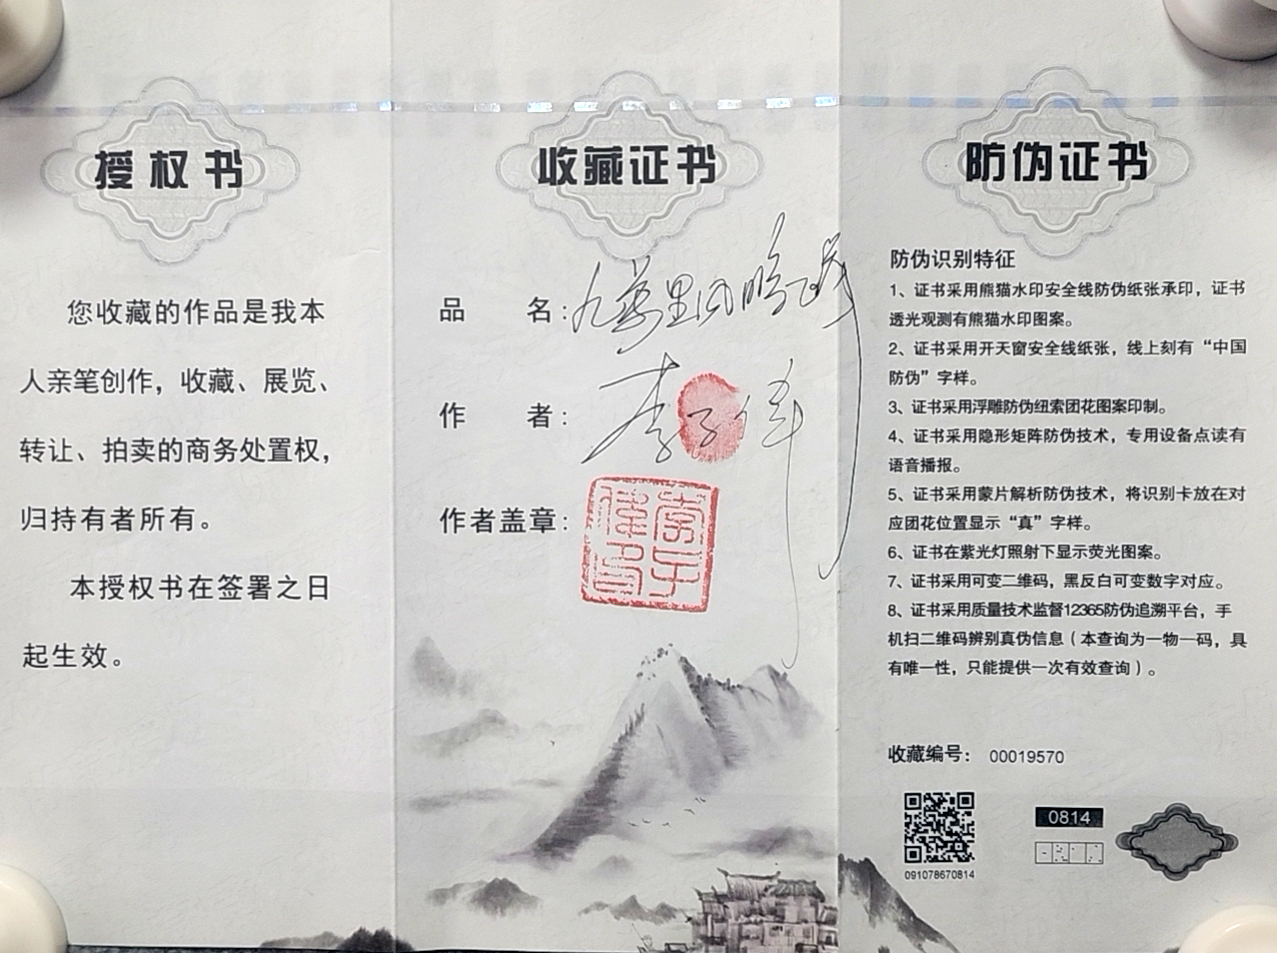 授权书
您收藏的作品是我本
人亲笔创作，收藏、展览、
转让、拍卖的商务处置权，
归持有者所有。
本授权书在签署之日
起生效。
收藏证书
品 名：九万里风鹏正举
作 者：李子伟
作者盖章：
防伪证书
防伪识别特征
1、证书采用熊猫水印安全线防伪纸张承印，证书
透光观测有熊猫水印图案。
2、证书采用开天窗安全线纸张，线上刻有“中国
防伪”字样。
3、证书采用浮雕防伪纽索团花图案印制。
4、证书采用隐形矩阵防伪技术，专用设备点读有
语音播报。
5、证书采用蒙片解析防伪技术，将识别卡放在对
应团花位置显示“真”字样。
6、证书在紫光灯照射下显示荧光图案。
7、证书采用可变二维码，黑反白可变数字对应。
8、证书采用质量技术监督12365防伪追溯平台，手
机扫二维码辨别真伪信息（本查询为一物一码，具
有唯一性，只能提供一次有效查询）。
收藏编号： 00019570
0814
091078670814